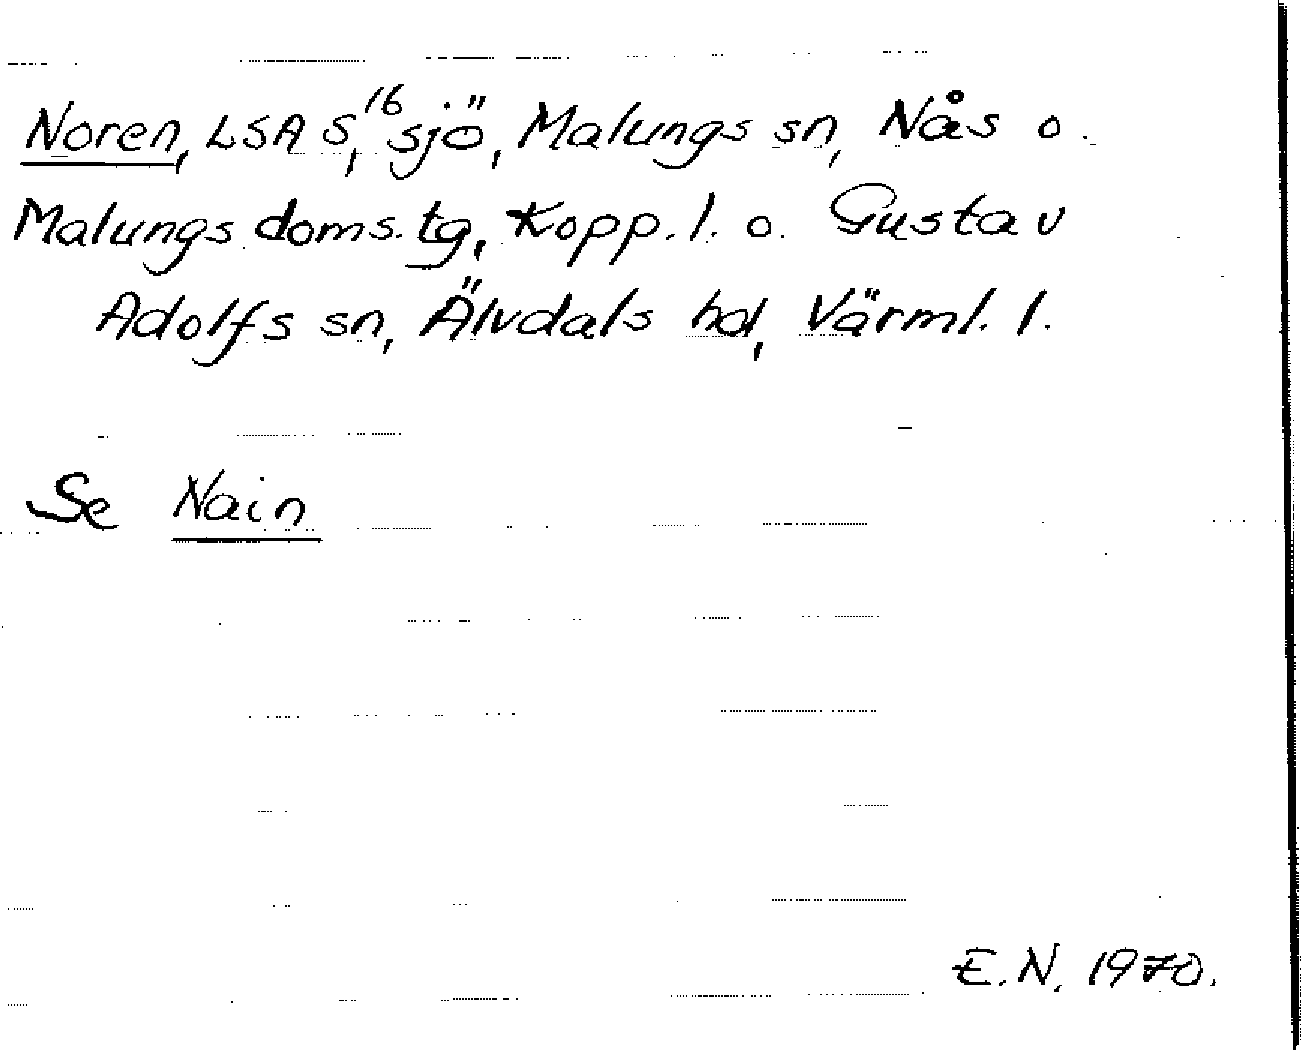 Noren, LSA S,¹⁶ sjö, Malungs sn, Nås o.
Malungs doms.tg, Kopp. l. o. Gustav
Adolfs sn, Älvdals hd, Värml. l.
Se Nain
E.N. 1970.